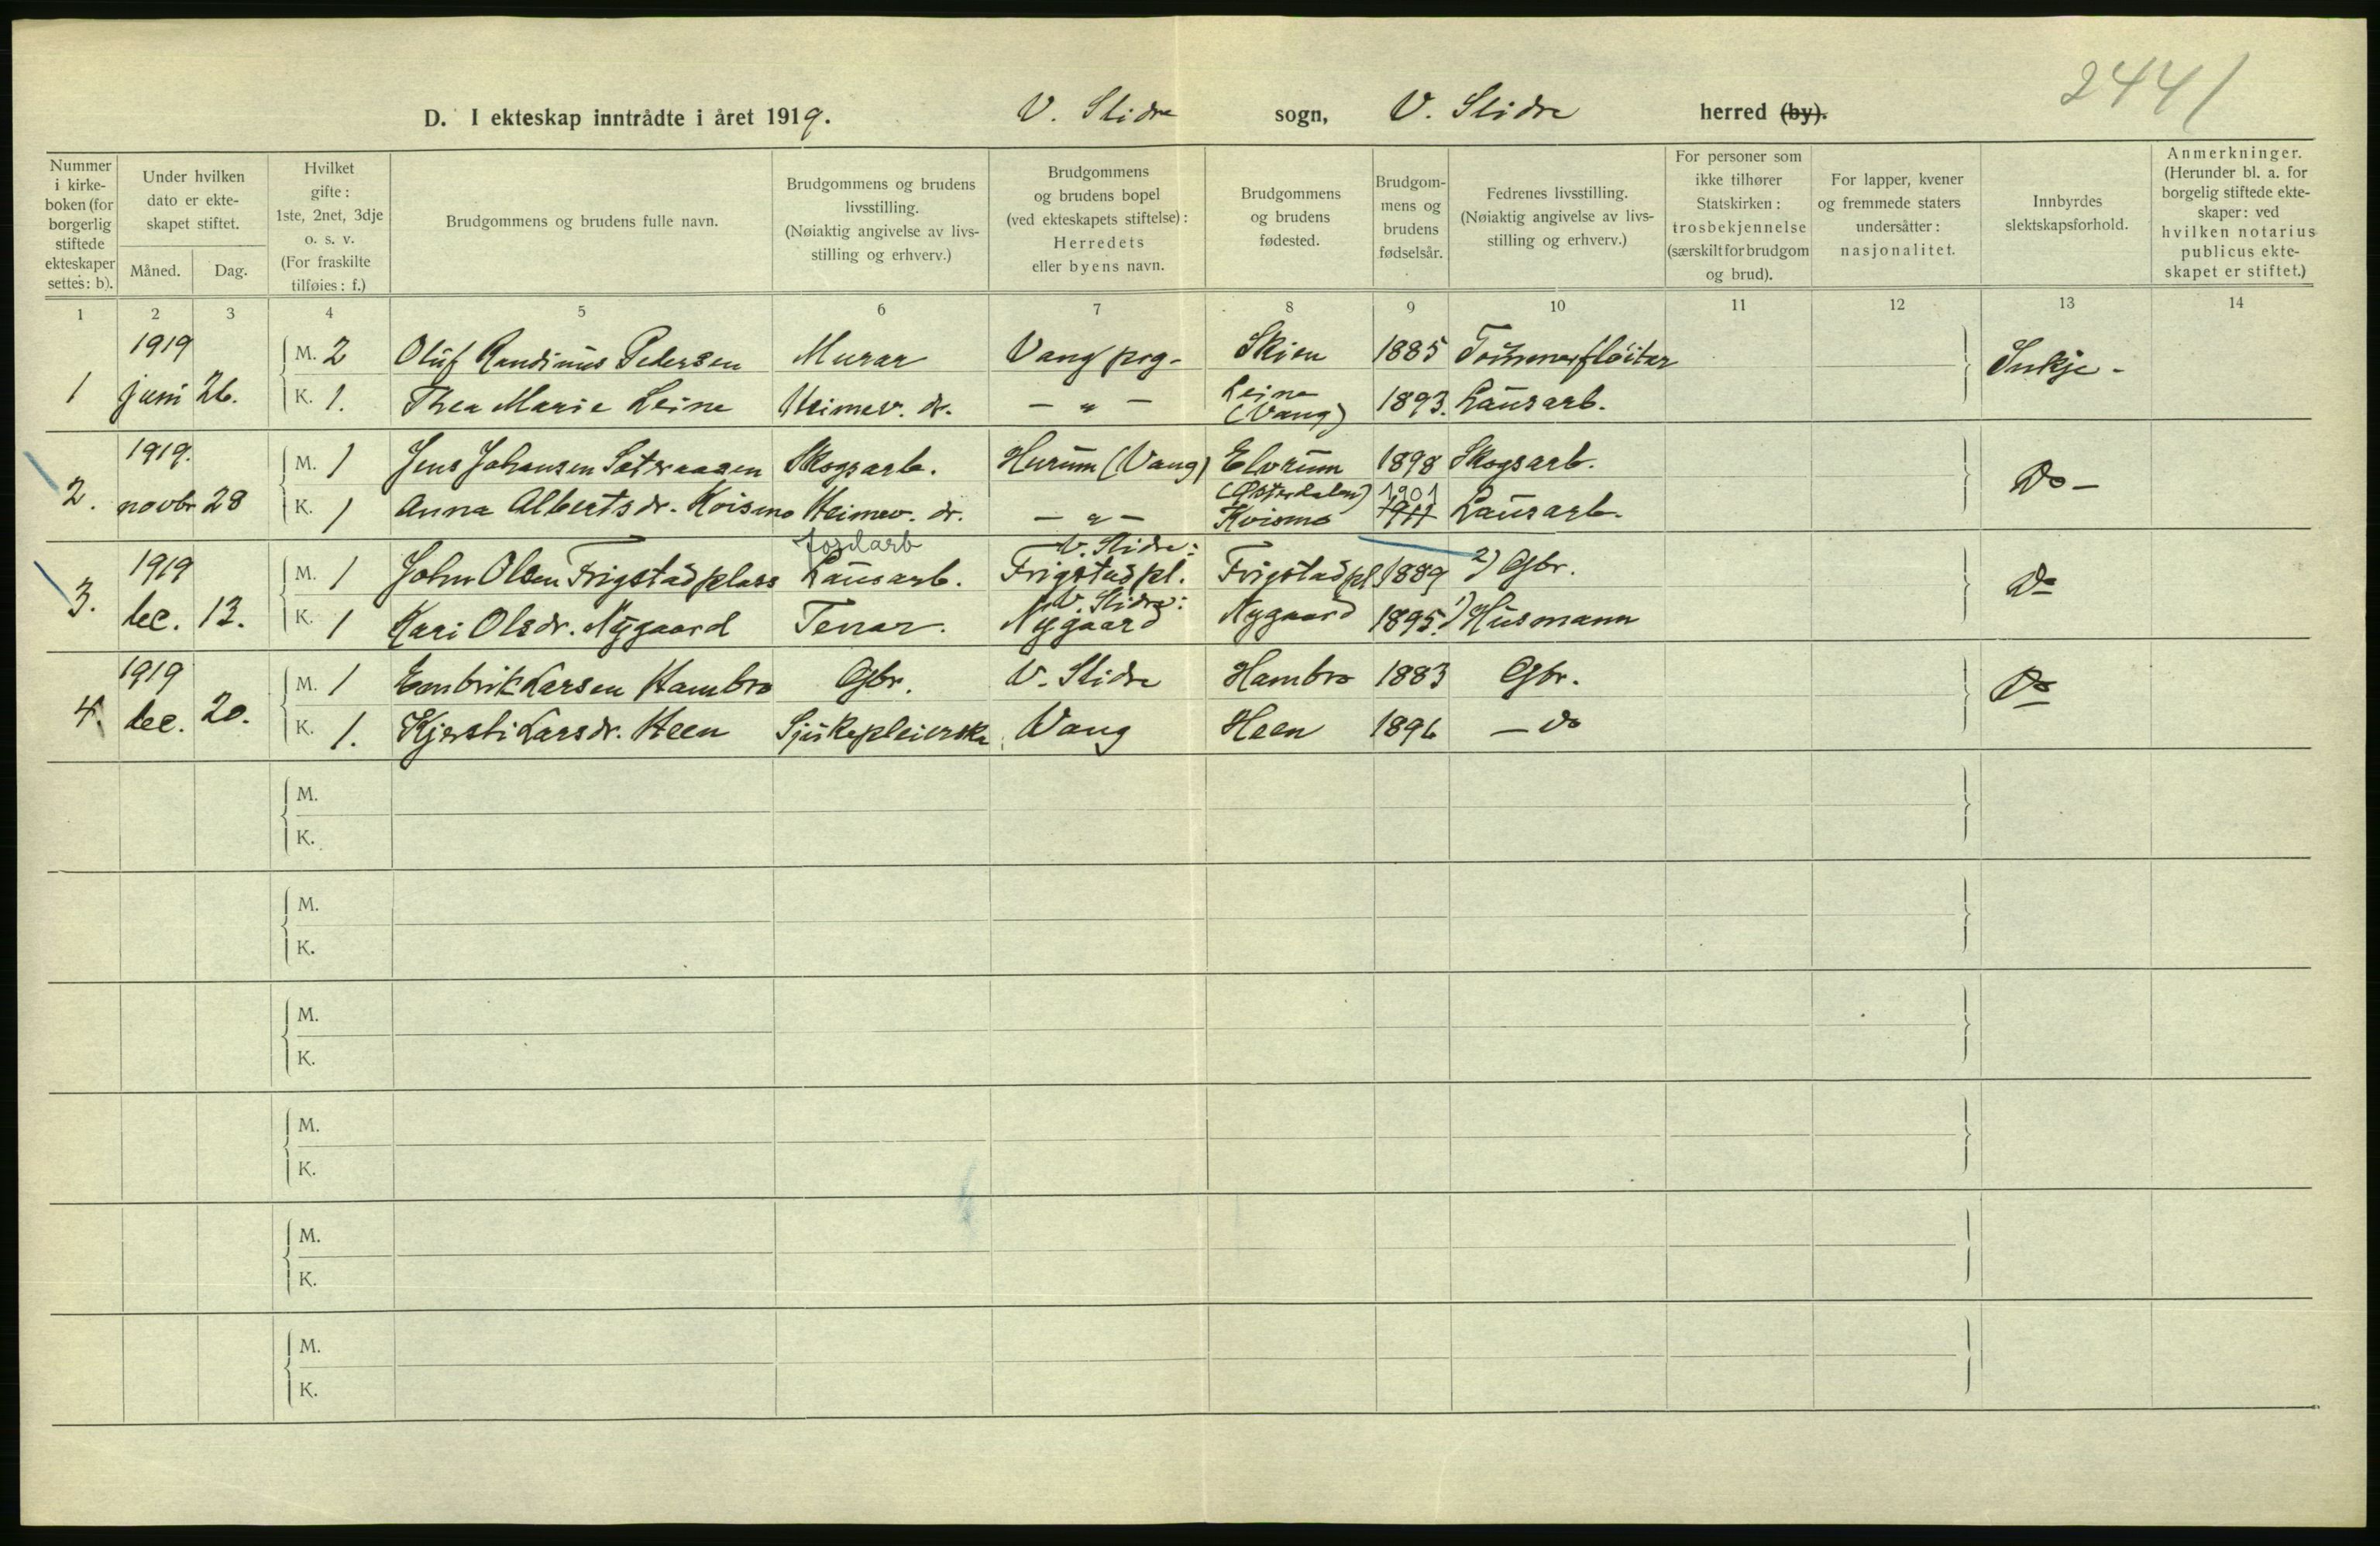 2441
D. I ekteskap inntrådte i året 1919. V. Slidre sogn, V. Slidre herred (by).
Nummer i kirke-boken (for borgerlig stiftede ekteskaper settes: b).
Under hvilken dato er ekte-skapet stiftet.
Måned. Dag.
Hvilket gifte: 1ste, 2net, 3dje o. s. v. (For fraskilte tilføies: f.)
Brudgommens og brudens fulle navn.
Brudgommens og brudens livsstilling. (Nøiaktig angivelse av livs-stilling og erhverv.)
Brudgommens og brudens bopel (ved ekteskapets stiftelse): Herredets eller byens navn.
Brudgommens og brudens fødested.
Brudgom-mens og brudens fødselsår.
Fedrenes livsstilling. (Nøiaktig angivelse av livs-stilling og erhverv.)
For personer som ikke tilhører Statskirken: trosbekjennelse (særskilt for brudgom og brud).
For lapper, kvener og fremmede staters undersåtter: nasjonalitet.
Innbyrdes slektskapsforhold.
Anmerkninger. (Herunder bl. a. for borgelig stiftede ekte-skaper: ved hvilken notarius publicus ekte-skapet er stiftet.)
1 2 3 4 5 6 7 8 9 10 11 12 13 14
1 1919 juni 26. M. 2 Oluf Randinus Pedersen Murar Vang prg. Skien 1885 Tömmerflöitar Inkje -
K. 1. Thea Marie Leine Heimev. dr. - " - Leine (Vang) 1893. Lausarb.
2. 1919. novbr 28 M. 1 Jens Johansen Sätraaasen Skogsarb. Hurum (Vang) Elvrum (Østerdalen) 1898 Skogsarb. Do -
K. 1 Anna Albertsdr. Kvismo Heimev. dr. - " - Kvismo 1901 1911 Lausarb.
3. 1919 dec. 13. M. 1 John Olsen Frigstadplass jordarb Lausarb. V. Slidre: Frigstadpl. Frigstadpl 1889 2) Gbr. Do
K. 1 Kari Olsdr. Nygaard Tenar. V. Slidre: Nygaard Nygaard 1895. 1) Husmann
4. 1919 dec. 20. M. 1 Embrik Larsen Hambro Gbr. V. Slidre Hambro 1883 Gbr. Do
K. 1. Kjersti Larsdr. Heen Sjukepleierska Vang Heen 1896 - do
M.
K.
M.
K.
M.
K.
M.
K.
M.
K.
M.
K.